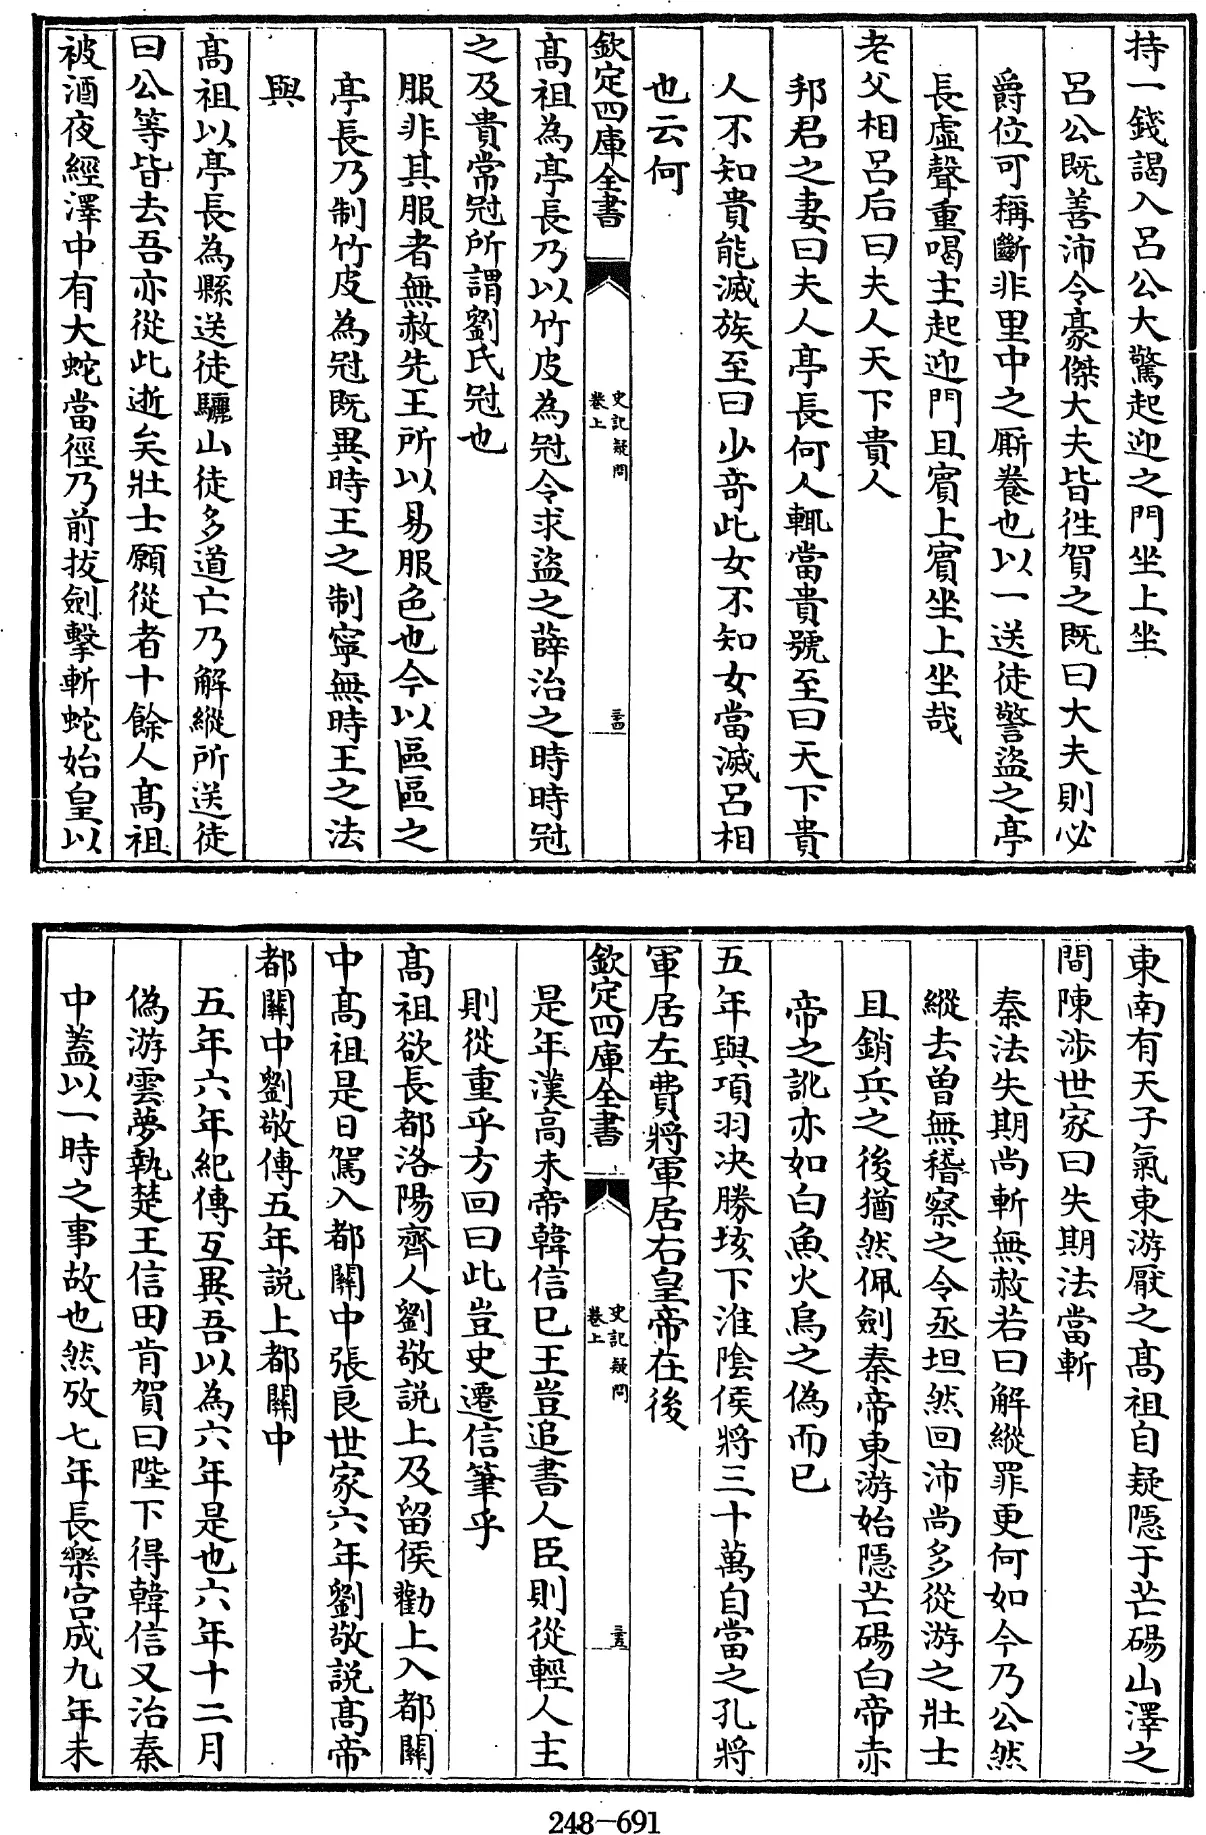 持一錢謁入吕公大驚起迎之門坐上坐
吕公既善沛令豪傑大夫皆徃賀之既曰大夫則必
爵位可稱斷非里中之厮養也以一送徒警盜之亭
長虛聲重喝主起迎門且賓上賓坐上坐哉
老父相吕后曰夫人天下貴人
邦君之妻曰夫人亭長何人輒當貴號至曰天下貴
人不知貴能滅族至曰少竒此女不知女當滅吕相
也云何
欽定四庫全書
史記疑問
卷上
三四
髙祖為亭長乃以竹皮為冠令求盜之薛治之時時冠
之及貴常冠所謂劉氏冠也
服非其服者無赦先王所以易服色也今以區區之
亭長乃制竹皮為冠既異時王之制寜無時王之法
與
髙祖以亭長為縣送徒驪山徒多道亡乃解縱所送徒
曰公等皆去吾亦從此逝矣壯士願從者十餘人髙祖
被酒夜經澤中有大蛇當徑乃前拔劍擊斬蛇始皇以
東南有天子氣東游厭之髙祖自疑隱于芒碭山澤之
間陳涉世家曰失期法當斬
秦法失期尚斬無赦若曰解縱罪更何如今乃公然
縱去曽無稽察之令丞坦然回沛尚多從游之壯士
且銷兵之後猶然佩劍秦帝東游始隱芒碭白帝赤
帝之訛亦如白魚火烏之偽而已
五年與項羽决勝垓下淮陰侯將三十萬自當之孔將
軍居左費將軍居右皇帝在後
欽定四庫全書
史記疑問
卷上
三五
是年漢高未帝韓信已王豈追書人臣則從輕人主
則從重乎方回曰此豈史遷信筆乎
髙祖欲長都洛陽齊人劉敬説上及留侯勸上入都關
中髙祖是日駕入都關中張良世家六年劉敬説髙帝
都關中劉敬傳五年説上都關中
五年六年紀傳互異吾以為六年是也六年十二月
偽游雲夢執楚王信田肯賀曰陛下得韓信又治秦
中蓋以一時之事故也然攷七年長樂宫成九年未
248-691